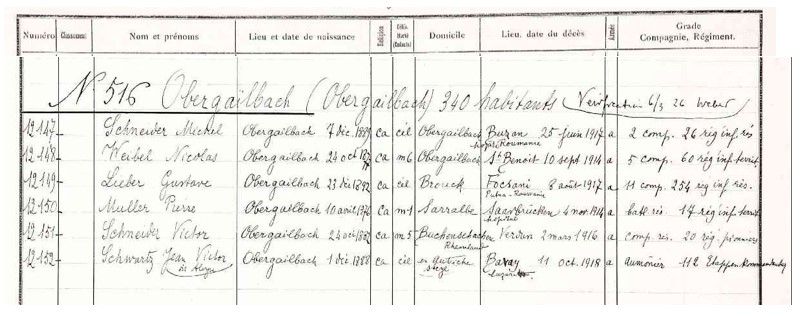 Numéro Classement Nom et prénoms Lieu et date de naissance Religion Célib. Marié (Enfants) Domicile Lieu, date du décès Armée Grade Compagnie, Régiment.
N° 516 Obergailbach (Obergailbach) 340 habitants (Vérification 6/3 26 Weber)
12147 Schneider Michel Obergailbach 7 déc. ca cél Obergailbach Buzau 25 juin 1917 a 2 comp. 26 rég inf. rés
Roumanie
12148 Weibel Nicolas Obergailbach 24 oct ca m6 Obergailbach St Benoit 10 sept 1914 a 5 comp. 60 rég inf territ.
12149 Lieber Gustave Obergailbach 23 déc 1892 ca cél Brouck Focsani 8 août 1917 a 11 comp. 254 rég inf. rés.
Putna-Roumanie
12150 Muller Pierre Obergailbach 10 avril ca m1 Sarralbe Saarbrücken 4 nov. 1914 a batt rés. 17 rég inf territ
hôpital
12151 Schneider Victor Obergailbach 24 ca m5 Verdun 2 mars 1916 a comp. rés. 20 rég pionniers
12152 Schwartz Jean Victor Obergailbach 1 déc. 1888 ca cél Bavay 11 oct. 1918 a aumônier 112 Etappen-Kommandantur